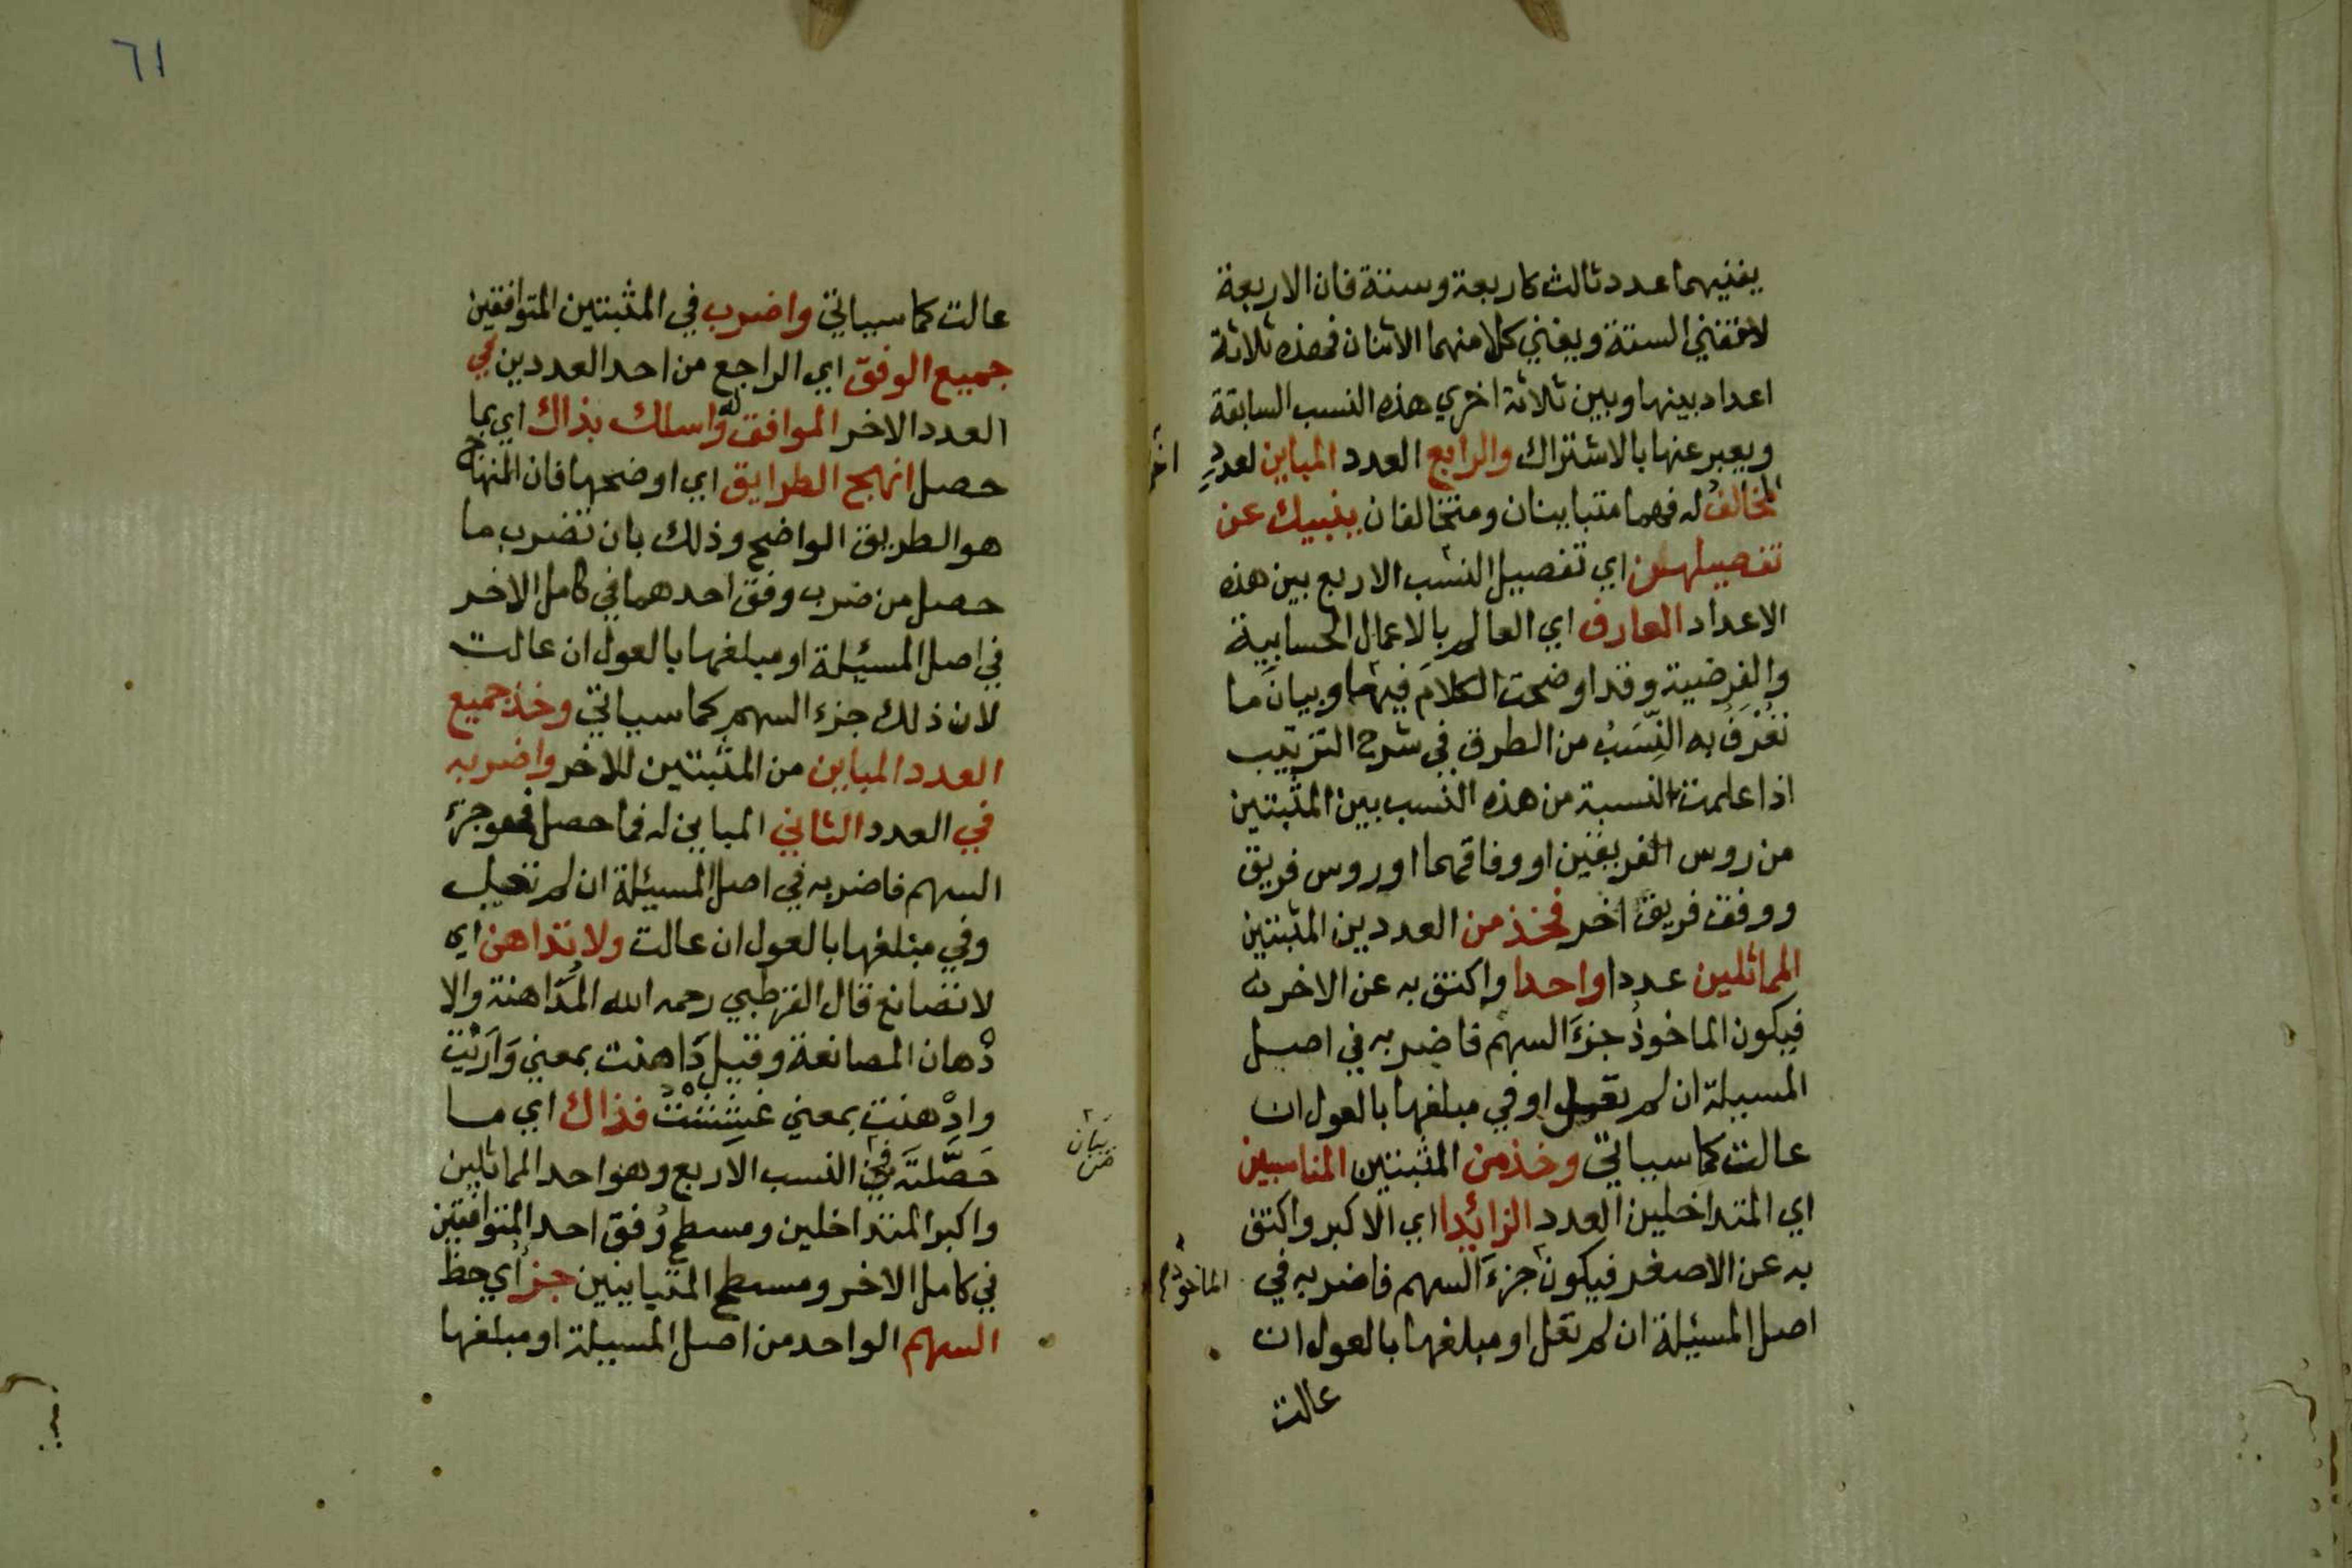 يفنيهما عدد ثالث كاربعة وستة فان الاربعة
لا تفني الستة ويفني كلا منهما الاثنان فهذه ثلاثة
اعداد بينها وبين ثلاثة اخري هذه النسب السابقة
ويعبر عنها بالاشتراك والرابع العدد المباين لعددٍ اخر
المخالفُ له فهما متباينان ومتخالفان ينبيك عن
تفصيلهن اي تفصيل النسب الاربع بين هذه
الاعداد العارف اي العالم بالاعمال الحسابية
والفرضية وقد اوضحت الكلامَ فيها وبيانَ ما
تُعْرَفُ به النِّسَبُ من الطرق في شرح الترتيب
اذا علمت النسبة من هذه النسب بين المثبتين
من روس الفريقين او وفاقهما او روس فريق
ووفق فريق اخر فخذ من العددين المثبتين
المماثلين عددا واحدا واكتف به عن الاخر
فيكون الماخوذُ جزءَ السهم فاضربه في اصل
المسيلة ان لم تعل او في مبلغها بالعول ان
عالت كما سياتي وخذ من المثبتين المناسبين
اي المتداخلين العدد الزائدا اي الاكبر واكتف
به عن الاصغر فيكون جزءَ السهم فاضربه في الماخوذ
اصل المسئيلة ان لم تعل او مبلغها بالعول ان
عالت
٦١
عالت كما سياتي واضرب في المثبتين المتوافقين
جميع الوفق اي الراجع من احد العددين في
العدد الاخر الموافق له واسلك بذاك اي بما
حصل انهج الطرايق اي اوضحها فان المنهاج
هو الطريق الواضح وذلك بان تضرب ما
حصل من ضرب وفق احدهما في كامل الاخر
في اصل المسيئلة او مبلغها بالعول ان عالت
لان ذلك جزء السهم كما سياتي وخذ جميع
العدد المباين من المثبتين للاخر واضربه
في العدد الثاني المباين له فما حصل فهو جزء
السهم فاضربه في اصل المسيئلة ان لم تعل
وفي مبلغها بالعول ان عالت ولا تداهن اي
لا تصانع قال القرطبي رحمه الله المُدَاهنة والا
دْهان المصانعة وقيل دَاهنت بمعني وَارَيْت
وادْهنت بمعني غَشَشْتُ فذاك اي ما
حَصَّلتَه في النسب الاربع وهو احد المماثلين
واكبر المتداخلين ومسطح وُفق احد المتوافقين
في كامل الاخر ومسطح المتباينين جزأي حظ
السهم الواحد من اصل المسيلة او مبلغها
بيان